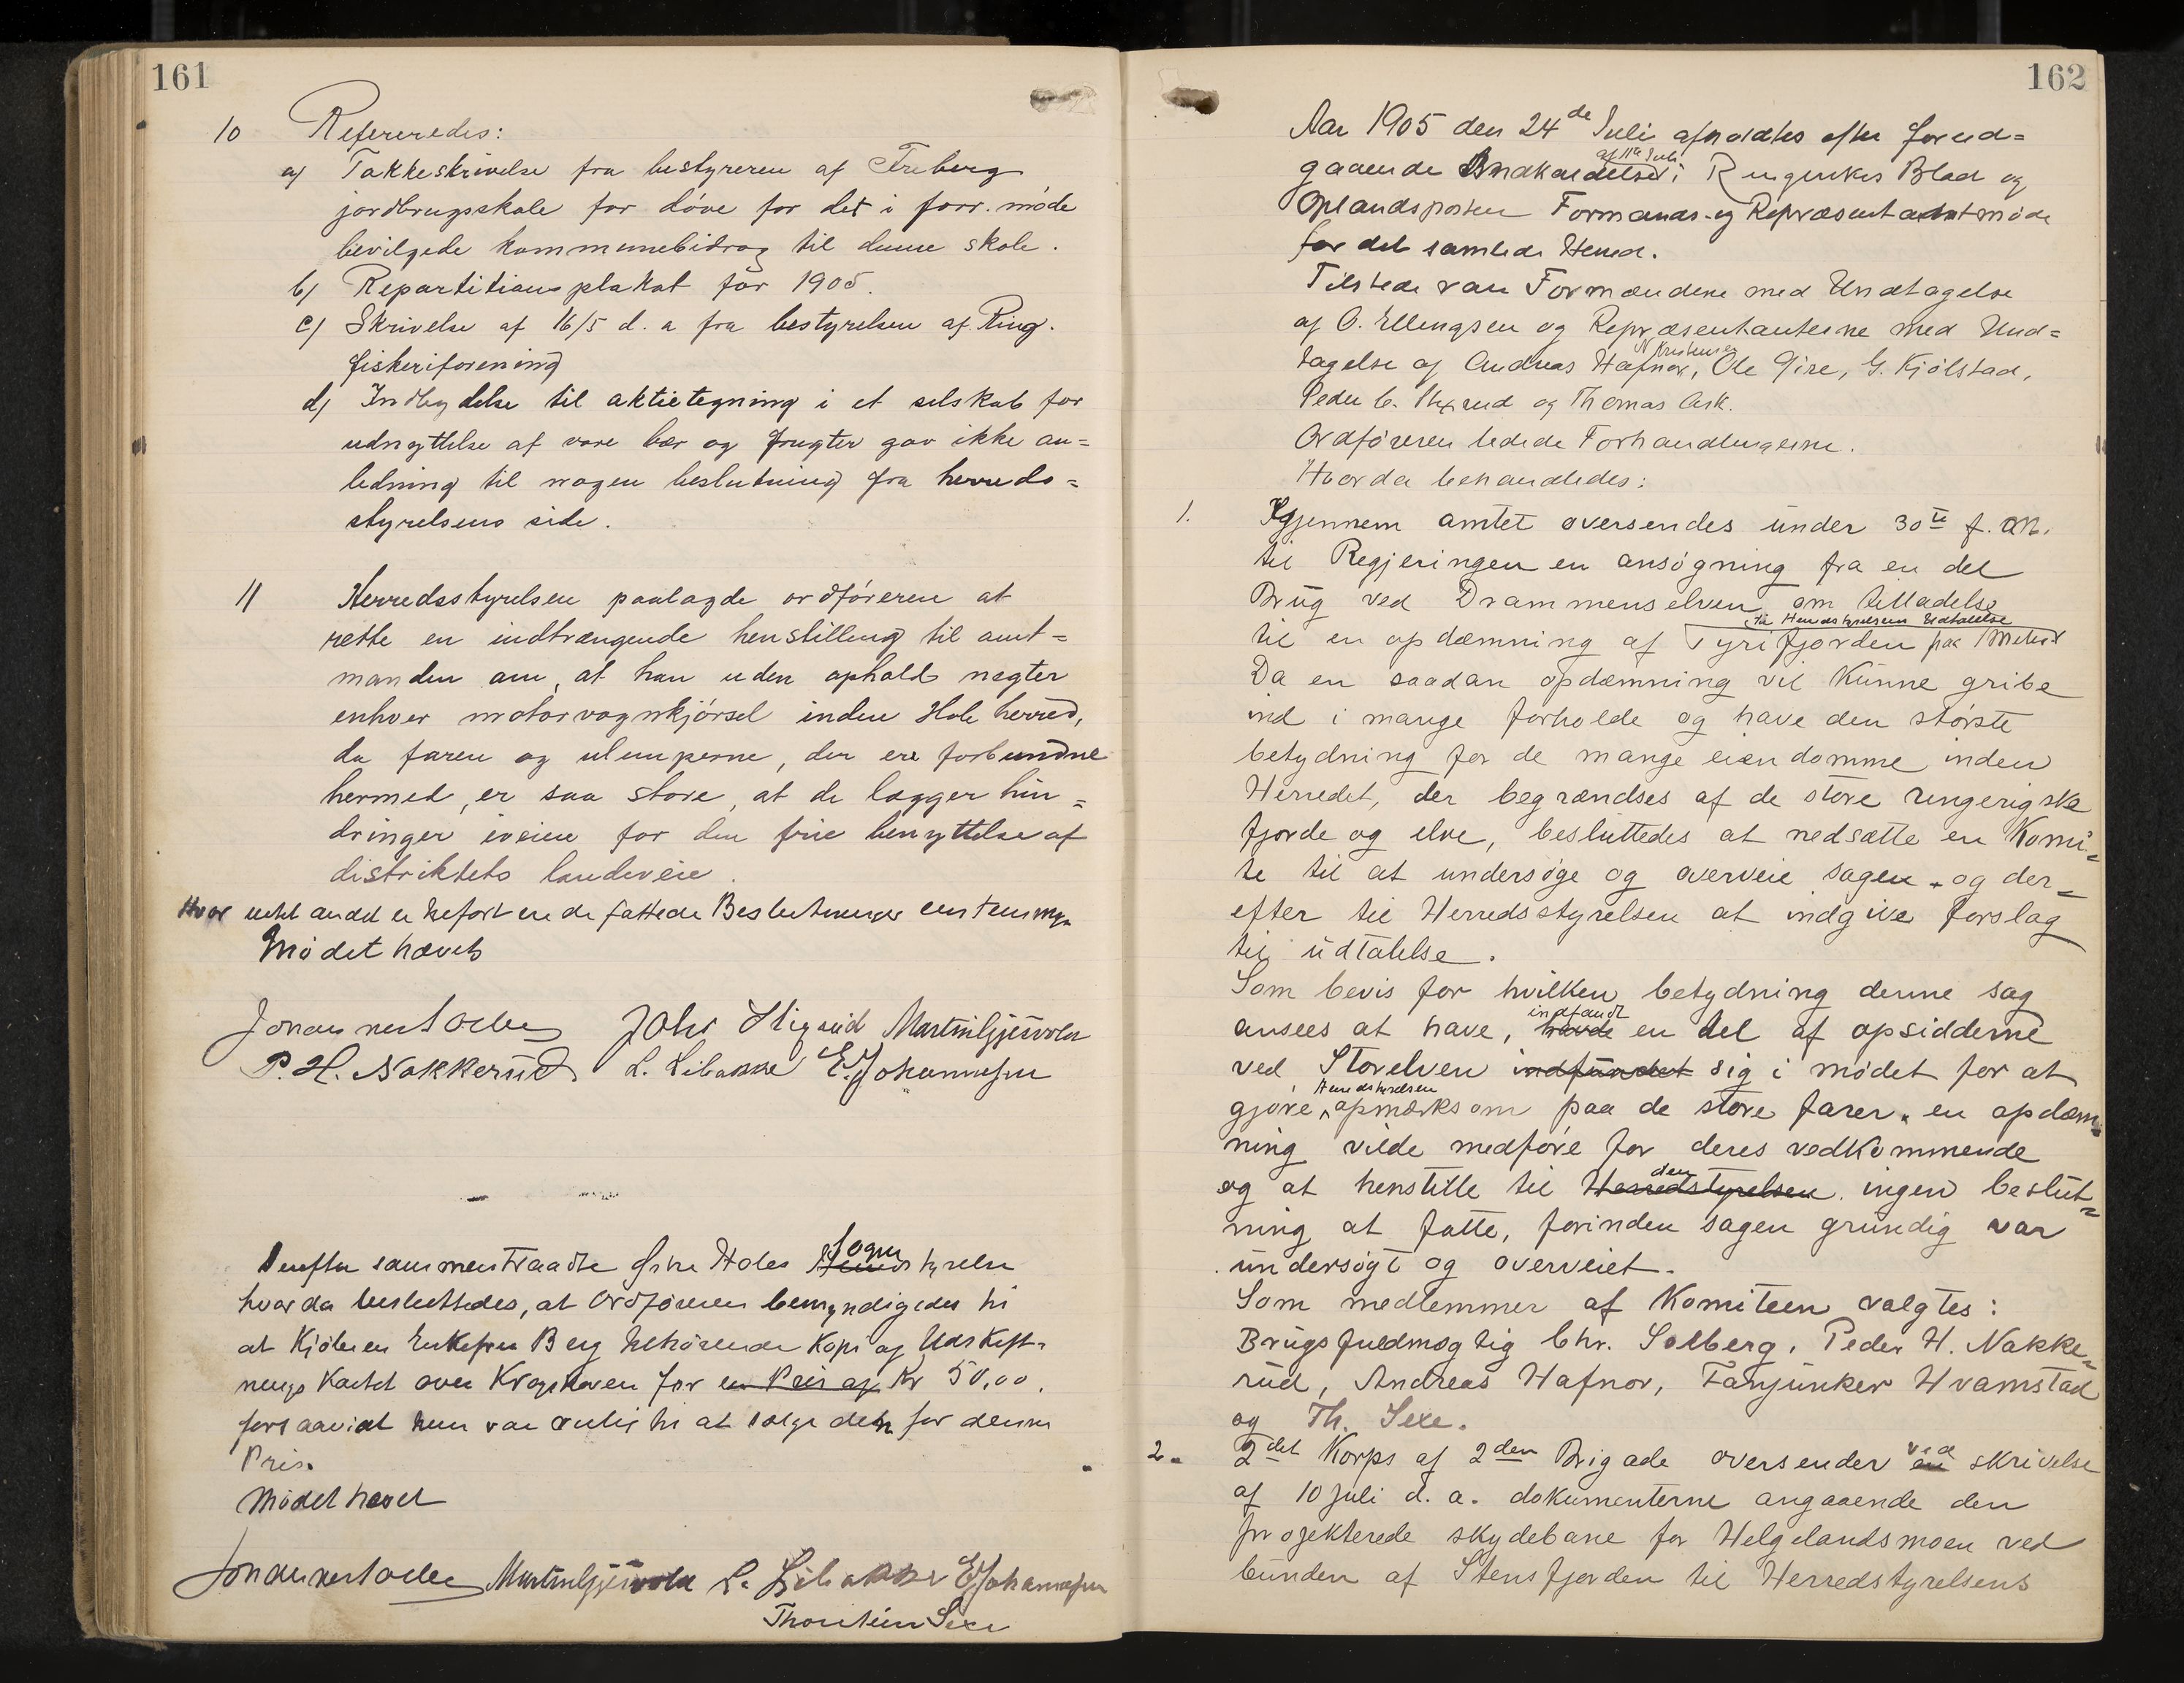 161
10 Refereredes:
a) Takkeskrivelse fra bestyreren af Freberg
jordbrugsskole for døve for det i forr. møde
bevilgede kommunebidrag til denne skole.
b) Repartitionsplakat for 1905.
c) Skrivelse af 16/5 d. a fra bestyrelsen af Ring.
fiskeriforening
d) Indbydelse til aktietegning i et selskab for
udnyttelse af vore bær og frugter gav ikke an=
ledning til nogen beslutning fra herreds=
styrelsens side.
11 Herredsstyrelsen paalagde ordføreren at
rette en indtrængende henstilling til amt=
manden om, at han uden ophold negter
enhver motorvognkjørsel inden Hole herred,
da faren og ulemperne, der ere forbundne
hermed, er saa store, at de lægger hin=
dringer iveien for den frie benyttelse af
distriktets landeveie.
Hvor intet andet er tilført ere de fattede Beslutninger enstemmige
Mødet hævet
John Martin Gjesvold
P. H. Nakkerud L. Libakke E. Johannesen
Derefter sammentraadte Hole Sognestyrelse
hvor da besluttedes, at Ordføreren bemyndigedes til
at Kjøbe en Enkefru Berg tilhørende Kopi af Udskift-
nings Kartet over Krogskoven for en Pris af Kr 50,00,
forsaavidt hun var villig til at sælge den for denne
Pris.
Mødet hævet
Martin Gjesvold L. Libakke E Johannesen
Thorstein Sexe
162
Aar 1905 den 24de Juli afholdtes efter forud=
gaaende Indkaldelse af 11te Juli i Ringerikes Blad og
Oplandsposten Formands- og Repræsentantmøde
for det samlede Herred.
Tilstede var Formændene med Undtagelse
af O. Ellingsen og Repræsentanterne med Und=
tagelse af Andreas Hafnor, N Kristensen, Ole Gire, G. Kjølstad,
Peder C. og Thomas Ask.
Ordføreren ledede Forhandlingerne.
Hvor da behandledes:
1. Igjennem amtet oversendes under 30te f. M.
til Regjeringen en ansøgning fra en del
Brug ved Drammenselven om tilladelse
til en opdæmning af Tyrifjorden paa 1 Meter til Herredstyrelsens Udtalelse
Da en saadan opdæmning vil kunne gribe
ind i mange forholde og have den største
betydning for de mange eiendomme inden
Herredet, der begrændses af de store ringerigske
fjorde og elve, besluttedes at nedsætte en Komi=
te til at undersøge og overveie sagen og der=
efter til Herredsstyrelsen at indgive forslag
til udtalelse.
Som bevis for hvilken betydning denne sag
ansees at have, havde indfandt en del af opsidderne
ved Storelven indfundet sig i mødet for at
gjøre Herredstyrelsen opmærksom paa de store farer, en opdæm=
ning vilde medføre for deres vedkommende
og at henstille til Herredstyrelsen den ingen beslut=
ning at fatte, forinden sagen grundig var
undersøgt og overveiet.
Som medlemmer af Komiteen valgtes:
Brugsfuldmægtig Chr. Solberg, Peder H. Nakke=
rud, Andreas Hafnor, Fanjunker Hvamstad
og Th. Sexe.
2. 2det Korps af 2den Brigade oversender en ved skrivelse
af 10 juli d. a. dokumenterne angaaende den
projekterede skydebane for Helgelandsmoen ved
bunden af Stensfjorden til Herredstyrelsens